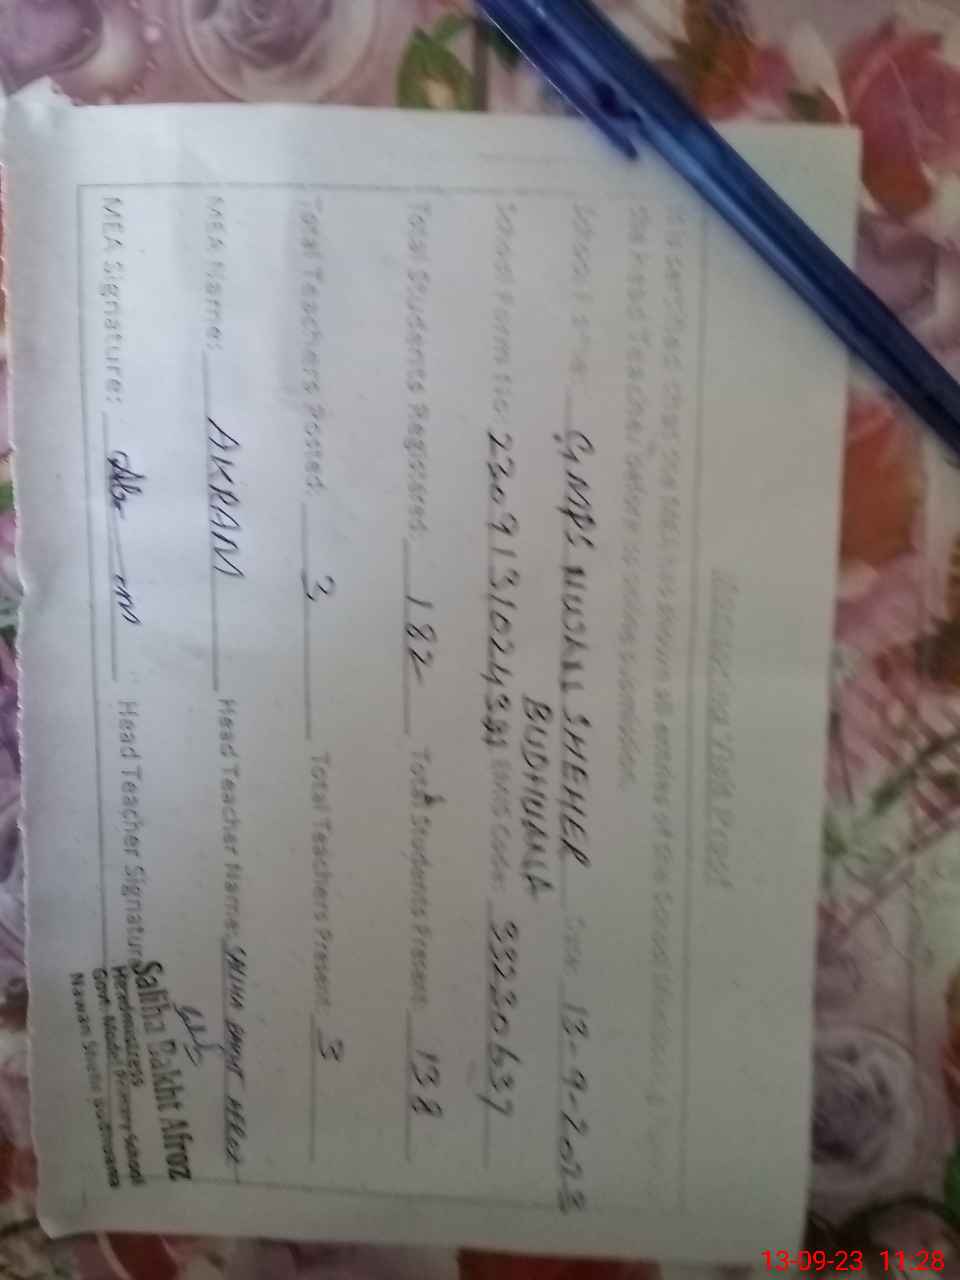 Monitoring Visit Proof
It is certified that the MEA has shown all entries of the School Monitoring
the Head Teacher before so being submission.
School Name: GMPS NUWAN SHEHER Date: 13-9-2023
BUDHUANA
School Form No: EMIS Code: 33230637
Total Students Registered: 182 Total Students Present: 138
Total Teachers Posted: 3 Total Teachers Present: 3
MEA Name: AKRAM Head Teacher Name: SALIHA BAKHT AFROZ
MEA Signature: Head Teacher Signature
Saliha Bakht Afroz
Headmistress
Govt. Model Primary School
Nawan Sheher Budhuana
13-09-23 11:28